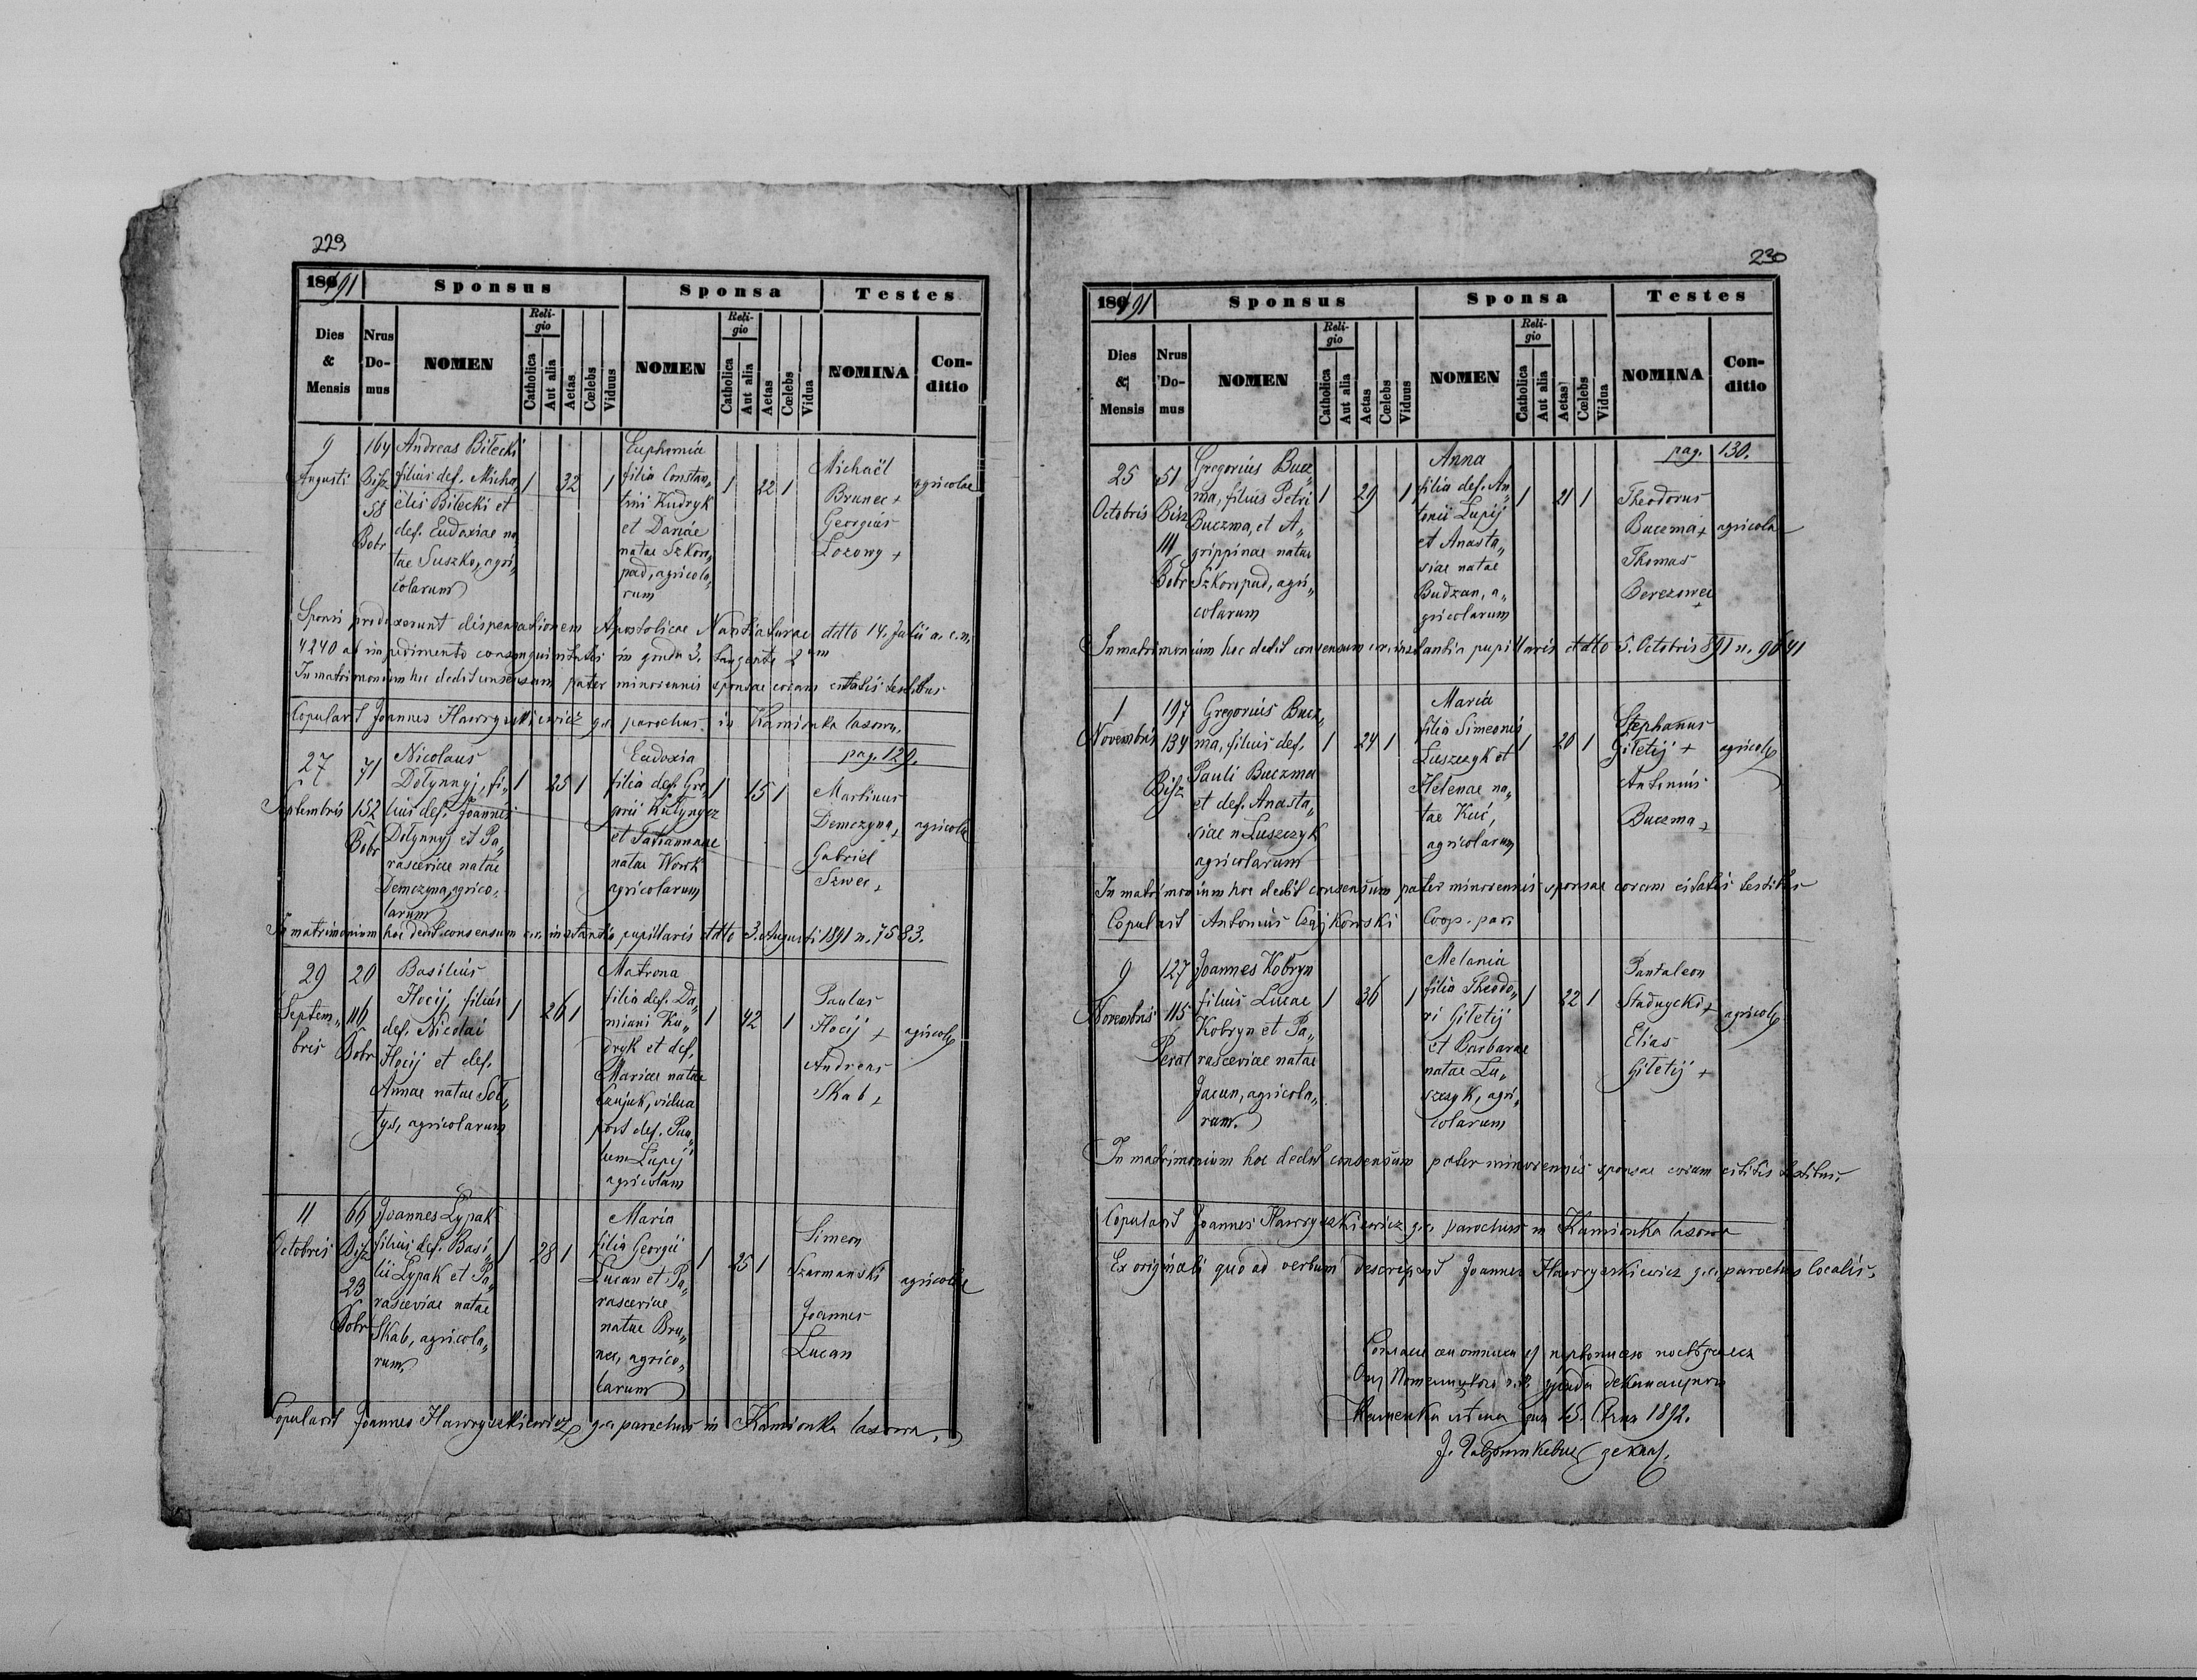 229
1891 Sponsus Sponsa Testes
Dies & Mensis Nrus Domus NOMEN Religio Catholica Aut alia Aetas Cœlebs Viduus NOMEN Religio Catholica Aut alia Aetas Cœlebs Vidua NOMINA Conditio
9 Augusti
164 Bisz
58 Bobr
Andreas Bilecki
filius def. Micha
ëlis Bilecki et
def. Eudoxiae na
tae Suszko, agri„
colarum
1 32 1
Euphemia
filia Constan„
tini Kudryk
et Dariae
natae Szkoro„
pad, agricola„
rum
1 22 1
Michaël
Brunec +
Georgius
Lozowy +
agricolae
Sponsi produxerunt dispensationem Apostolicae Nuntiaturae ddto 14. Julii a. c. n.
4240 ab impedimento consanguinitatis in gradu 3. tangente 2um
In matrimonium hoc dedit consensum pater minorennis sponsae coram citatis testibus
Copulavit Joannes Hawryszkiewicz g.c. parochus in Kamionka lasowa.
pag. 129.
27 Septembris
71
152 Bobr
Nicolaus
Dołynnyj, fi„
lius def. Joannis
Dołynnyj et Pa„
rasceviae natae
Demczyna, agrico„
larum
1 25 1
Eudoxia
filia def. Gre„
gorii Kułynycz
et Tatiannae
natae Wowk
agricolarum
1 15 1
Martinus
Demczyna +
Gabriel
Szwec +
agricolae
In matrimonium hoc dedit consensum c.r. instantia pupillaris ddto 3. Augusti 1891 n. 7583.
29 Septem„
bris
20
116
Bobr
Basilius
Hocij, filius
def. Nicolai
Hocij et def.
Annae natae Soł„
tys, agricolarum
1 26 1
Matrona
filia def. Da„
miani Ku„
dryk et def.
Mariae natae
Czujuk, vidua
post def. Pau„
lum Lupij
agricolam
1 42 1
Paulus
Hocij +
Andreas
Skab +
agricolae
11 Octobris
66 Bisz
23
Bobr
Joannes Lypak
filius def. Basi„
lii Lypak et Pa„
rasceviae natae
Skab, agricola„
rum
1 28 1
Maria
filia Georgii
Lucan et Pa„
rasceviae
natae Bru„
nec, agrico„
larum
1 25 1
Simeon
Szarmanski
Joannes
Lucan
agricolae
Copulavit Joannes Hawryszkiewicz g.c. parochus in Kamionka lasowa.
230
1891 Sponsus Sponsa Testes
Dies & Mensis Nrus Domus NOMEN Religio Catholica Aut alia Aetas Cœlebs Viduus NOMEN Religio Catholica Aut alia Aetas Cœlebs Vidua NOMINA Conditio
pag. 130.
25 Octobris
51 Bisz
111
Bobr
Gregorius Bucz„
ma, filius Petri
Buczma, et A„
grippinae natae
Szkoropad, agri„
colarum
1 29 1
Anna
filia def. An„
tonii Lupij
et Anasta„
siae natae
Budzan, a„
gricolarum
1 21 1
Theodorus
Buczma +
Thomas
Berezowec
+
agricolae
In matrimonium hoc dedit consensum c.r. instantia pupillaris ddto 5. Octobris 891 n. 9641
1 Novembris
197
134
Bisz
Gregorius Bucz„
ma, filius def.
Pauli Buczma
et def. Anasta„
siae n. Luszczyk
agricolarum
1 24 1
Maria
filia Simeonis
Luszczyk et
Helenae na„
tae Kuć,
agricolarum
1 20 1
Stephanus
Giletij +
Antonius
Buczma +
agricolae
In matrimonium hoc dedit consensum pater minorennis sponsae coram citatis testibus
Copulavit Antonius Czajkowski Coop. par.
9 Novembris
127
115
Perat
Joannes Kobryn
filius Lucae
Kobryn et Pa„
rasceviae natae
Jacun, agricola„
rum.
1 36 1
Melania
filia Theodo„
ri Giletij
et Barbarae
natae Lu„
szczyk, agri„
colarum
1 22 1
Pantaleon
Stadnycki +
Elias
Giletij +
agricolae
In matrimonium hoc dedit consensum pater minorennis sponsae coram citatis testibus.
Copulavit Joannes Hawryszkiewicz g.c. parochus in Kamionka lasowa
Ex originali quo ad verbum descripsit Joannes Hawryszkiewicz g.c. parochus localis.
деканального
15. 1892.
декан.